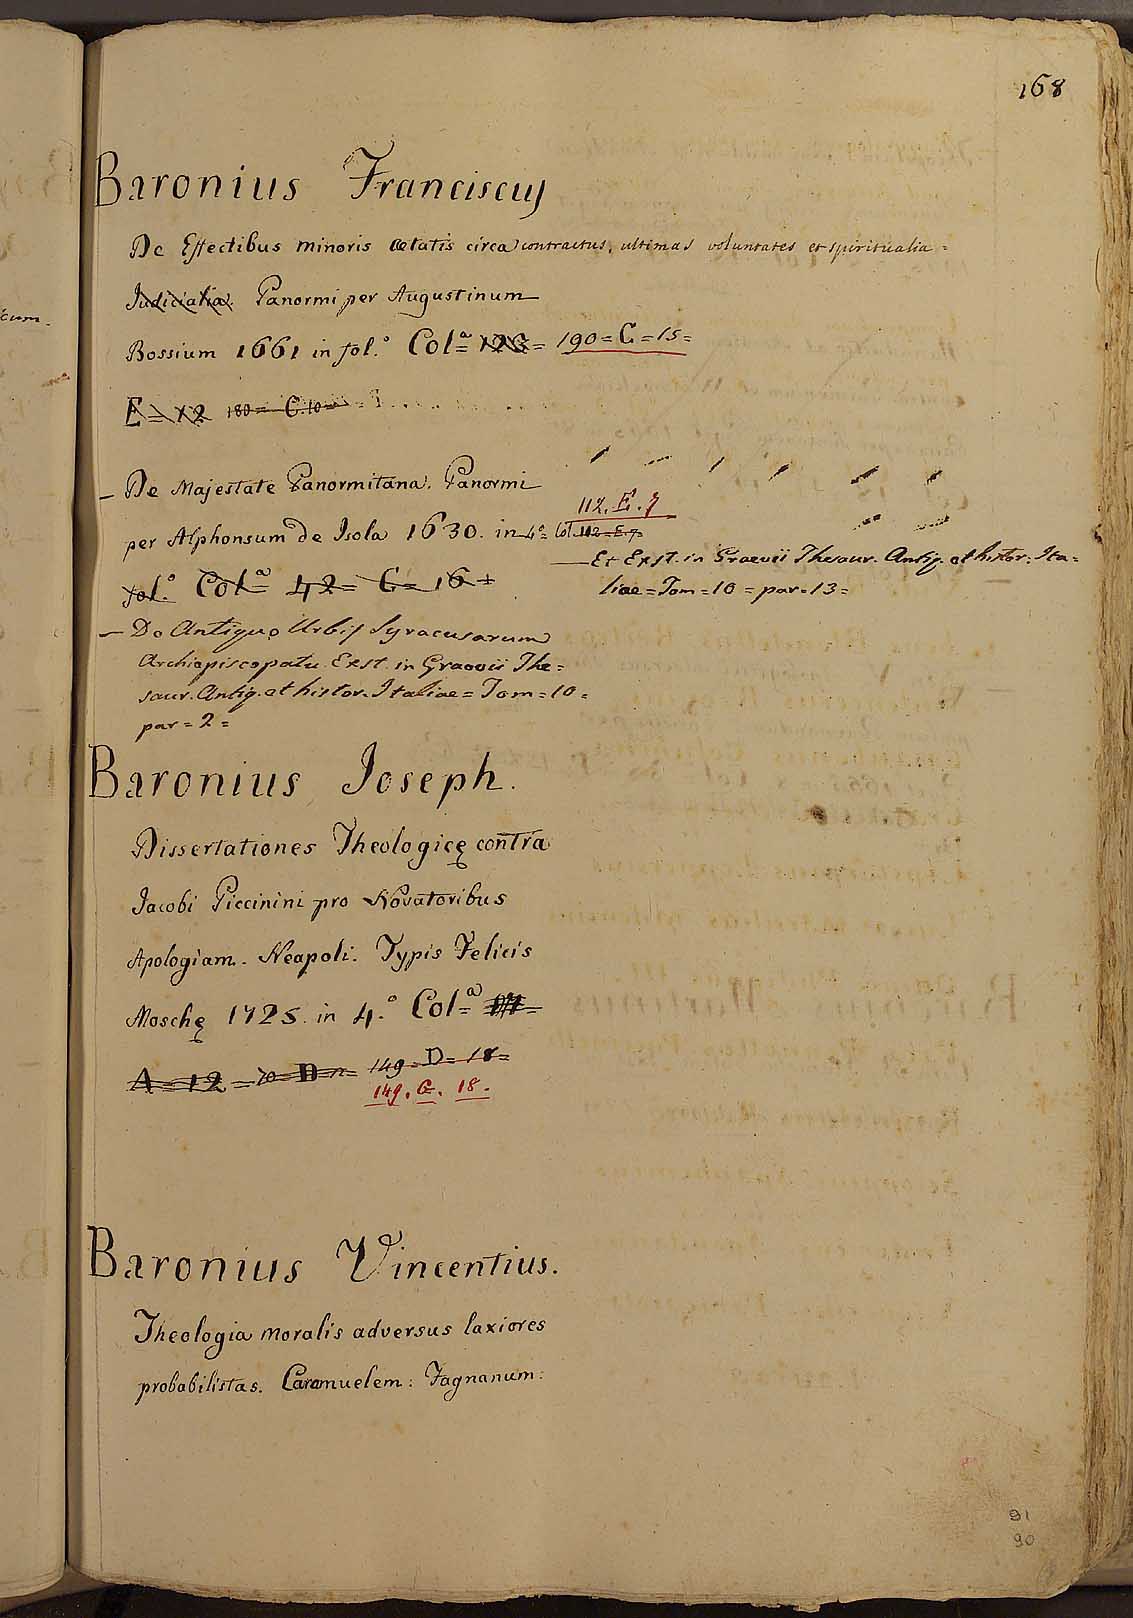 168
Baronius Franciscus
De Effectibus minoris ætatis circa contractus, ultimas voluntates et spiritualia =
Judicialia. Panormi per Augustinum
Bossium 1661 in fol.° Col=ª 126= 190=C=15=
E = 12 180= C.10=
– De Majestate Panormitana. Panormi
112. E. 7
per Alphonsum de Isola 1630. in 4°= Col 112=E=7=
— Et Exst. in Graevii Thesaur. Antiq. et histor. Ita=
liae = Tom = 10 = par = 13 =
fol.° Col=ª 42= C=16=
– De Antiquo Urbis Syracusarum
Archiepiscopatu. Exst. in Graevii The=
saur. Antiq. et histor. Italiae = Tom = 10 =
par = 2 =
Baronius Joseph.
Dissertationes Theologicę contra
Jacobi Piccinini pro Novatoribus
Apologiam. Neapoli. Typis Felicis
Moschę 1725. in 4.° Col=ª
A = 12 = 70 = D = 149=D=18=
149. G. 18.
Baronius Vincentius.
Theologia moralis adversus laxiores
probabilistas. Caramuelem: Fagnanum:
91
90